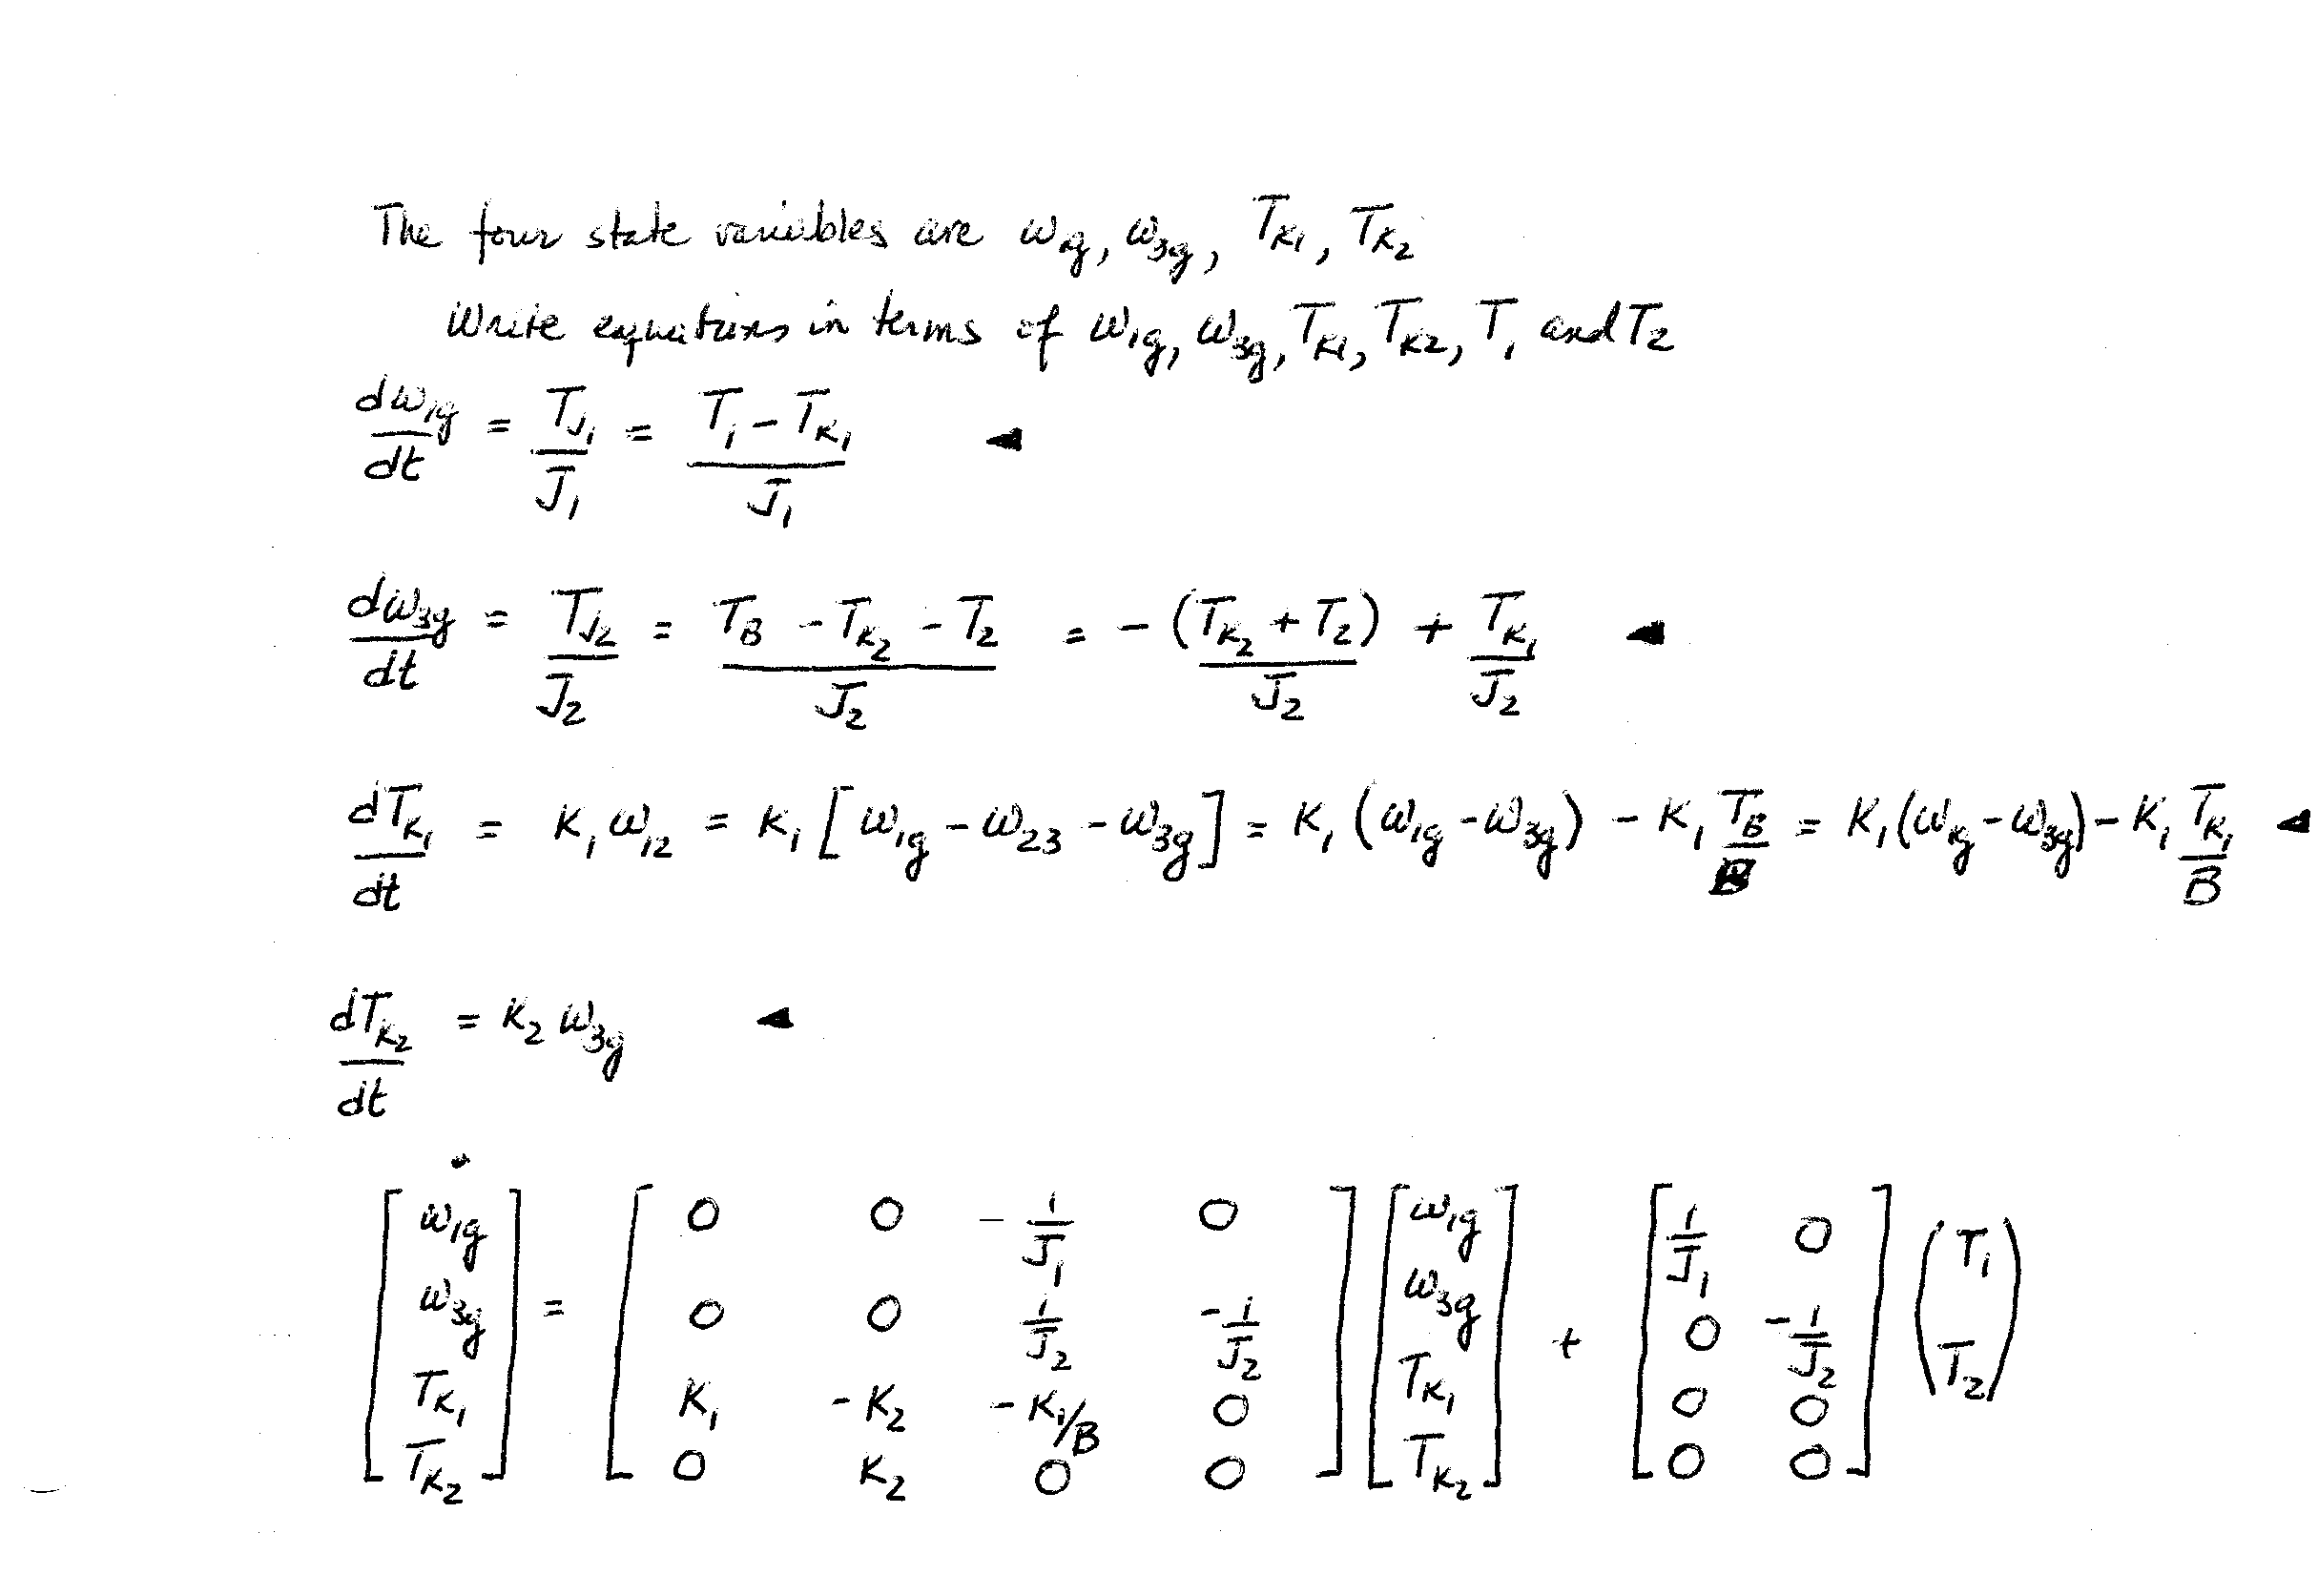 The four state variables are ω1g, ω3g, TK1, TK2
Write equations in terms of ω1g, ω3g, TK1, TK2, T1 and T2
dω1g/dt = TJ1/J1 = (T1 - TK1)/J1 ◄
dω3g/dt = TJ2/J2 = (TB - TK2 - T2)/J2 = -(TK2 + T2)/J2 + TK1/J2 ◄
dTK1/dt = K1 ω12 = K1 [ω1g - ω23 - ω3g] = K1 (ω1g - ω3g) - K1 TB/B = K1 (ω1g - ω3g) - K1 TK1/B ◄
dTK2/dt = K2 ω3g ◄
[ω1g] [0 0 -1/J1 0] [ω1g] [1/J1 0] (T1
[ω3g] = [0 0 1/J2 -1/J2] [ω3g] + [0 -1/J2] T2)
[TK1] [K1 -K2 -K1/B 0] [TK1] [0 0]
[TK2] [0 K2 0 0] [TK2] [0 0]